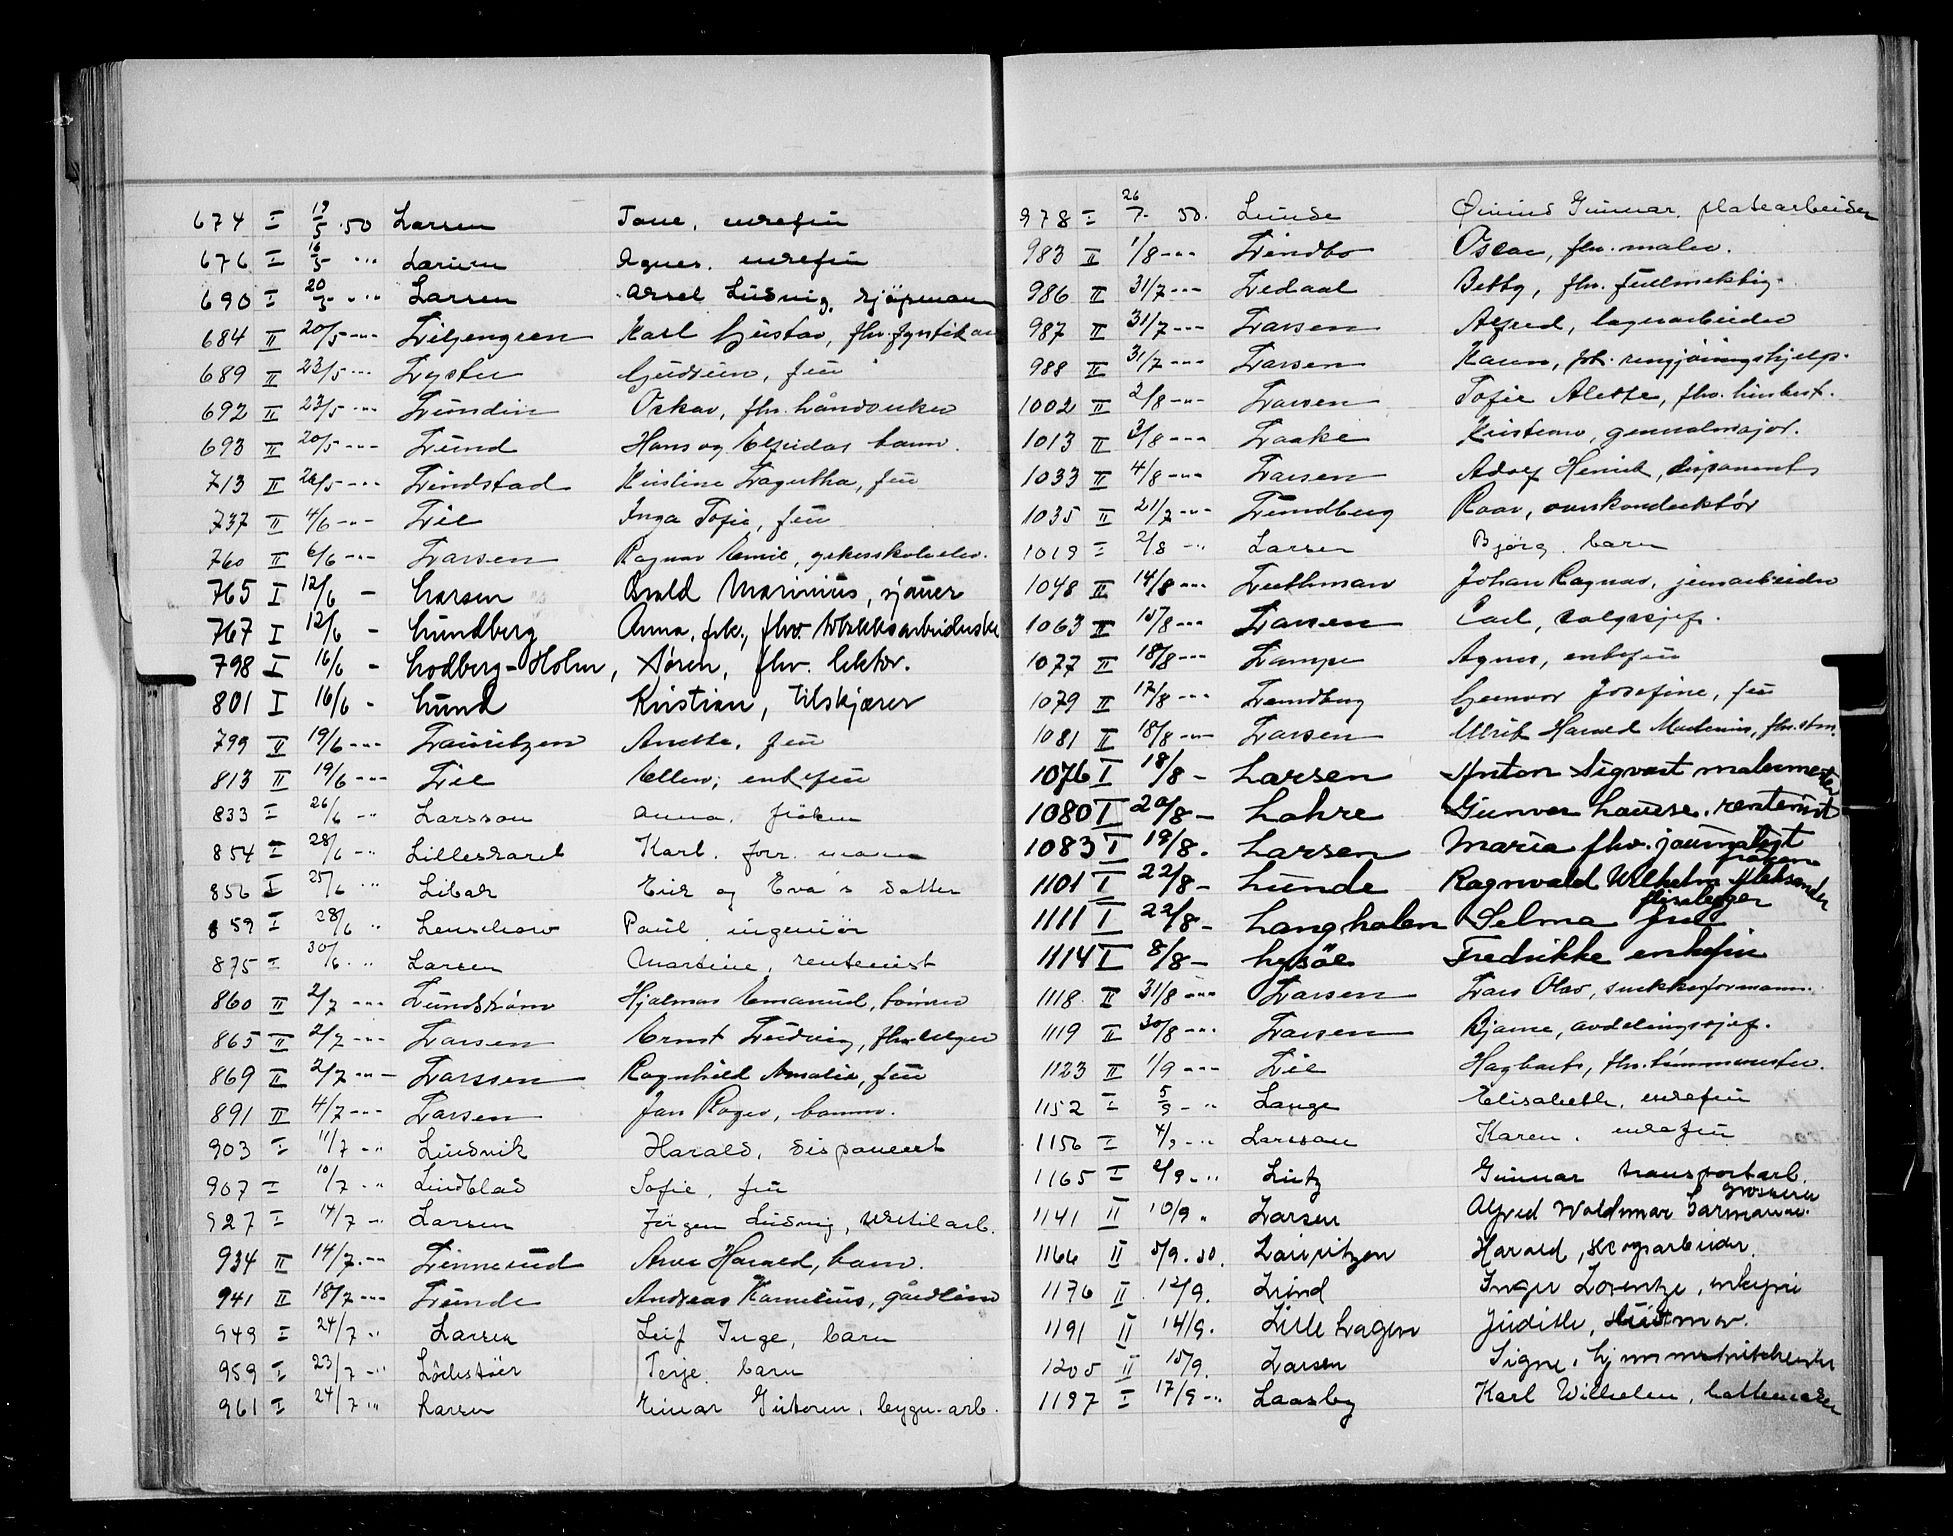 674 I 19/5 .50 Larsen Tone, enkefru
676 I 16/5 - " Larsen Agnes. enkefru
690 I 20/5 - " Larsen Aksel Ludvig, sjøpmann
684 II 20/5 - " - Liljengren Karl Gustav, fhv.
689 II 23/5 - " - Lyster Gudrun, fru
692 II 23/5 - " - Lundin Oskar, fhv. håndverker
693 II 20/5 - " - Lund Hans og Elfridas barn.
713 II 26/5 - " - Lindstad Kirstine Dagertha, fru
737 II 4/6 - " - Lie Inga Sofie, fru
760 II 6/6 - " - Larsen Ragnar Emil, yrkesskoleelev.
765 I 12/6 - Larsen Osvald Marinius, sjauer
767 I 12/6 - Lundberg Anna, frk., fhv. blikkarbeiderske
798 I 16/6 - Lodberg-Holm, Søren, fhv. lektor.
801 I 16/6 - Lund Kristian, tilskjærer
799 II 19/6 - " - Lauritzen Anette, fru
813 II 19/6 - " - Lie Ellen, enkefru
833 I 26/6 - " Larsson Anna, frøken
854 I 28/6 - " Lilleskaret Karl. forr. mann
856 I 25/6 - " Libak Erik og Eva's datter
859 I 28/6 " Lenschow Paul, ingeniør
875 I 30/6 - " Larsen Martine, rentenist
860 II 2/7 - " - Lundstrøm Hjalmar Emanuel, tømrer
865 II 2/7 - " - Larsen Ernst Ludvig, fhv. selger
869 II 2/7 - " - Larssen Ragnhild Amalie, fru
891 II 4/7 - " - Larsen Jan Roger, barn.
903 I 11/7 - " Ludvik Harald, disponent
907 I 10/7 - " Lindblad Sofie, fru
927 I 14/7 - " Larsen Jørgen Ludvig, tekstilarb.
934 II 14/7 - " Linnerud Arve Harald, barn.
941 II 18/7 - " - Lunde Andreas Kornelius, gårdbrur
949 I 24/7 " Larsen Leif Inge, barn
959 I 23/7 - " Lødestøer Terje, barn
961 I 24/7 " Larsen Einar Guttorm, bygn.-arb.
978 I 26/7 - 50. Lunde Øivind Gunnar, platearbeider
983 II 1/8 - " - Lindbo Oscar, fhv. maler.
986 II 31/7 - " - Ledaal Betty, fhv. fullmektig.
987 II 31/7 - " - Larsen Alfred, lagerarbeider
988 II 31/7 - " - Larsen Karen, frk. rengjøringshjelp.
1002 II 2/8 - " - Larsen Sofie Alette, fhv. husbest.
1013 II 3/8 - " - Laake Kristian, generalmajor.
1033 II 4/8 - " - Larsen Adolf Henrik, disponent
1035 II 21/7 - " - Lundberg Roar, overkonduktør
1019 I 2/8 - " Larsen Bjørg. barn
1048 II 14/8 - " - Luthman Johan Ragnar, jernarbeider
1063 II 15/8 - " - Larsen Carl, salgssjef.
1077 II 18/8 - " - Lampe Agnes, enkefru
1079 II 17/8 - " - Lundberg Gunvor Josefine, fru
1081 II 18/8 - " - Larsen Ulrik Harald Martinius, fhv. stm.
1076 I 18/8 - Larsen Anton Sigvart malermester
1080 I 20/8 - Lohre Gunvor Louise. rentenist
1083 I 19/8. Larsen Maria fhv. journalist frøken
1101 I 22/8 - Lunde Ragnvald Wilhelm Aleksander fliselegger
1111 I 22/8 - Langholen Selma fru
1114 I 8/8 - Lysøe Fredrikke enkefru
1118 II 31/8 - " - Larsen Lars Olav, snekkerformann.
1119 II 30/8 - " - Larsen Bjarne, avdelingssjef.
1123 II 1/9 - " - Lie Hagbart, fhv. tømmermester.
1152 I 5/9 - " Lange Elisabeth, enkefru
1156 I 4/9 - " Larsson Karen, enkefru
1165 I 2/9 - " Lutz Gunnar transportarb.
1141 II 10/9 " Larsen Alfred Woldmar Sarmann. grosserer
1166 II 5/9. 50. Lauritzen Harald, skogsarbeider.
1176 II 12/9. Lund Inger Lorentze, enkefru
1191 II 14/9. Lillehagen Judith, husmor.
1205 II 15/9. Larsen Signe,
1197 I 17/9 - " Laasby Karl Wilhelm, hattemaker